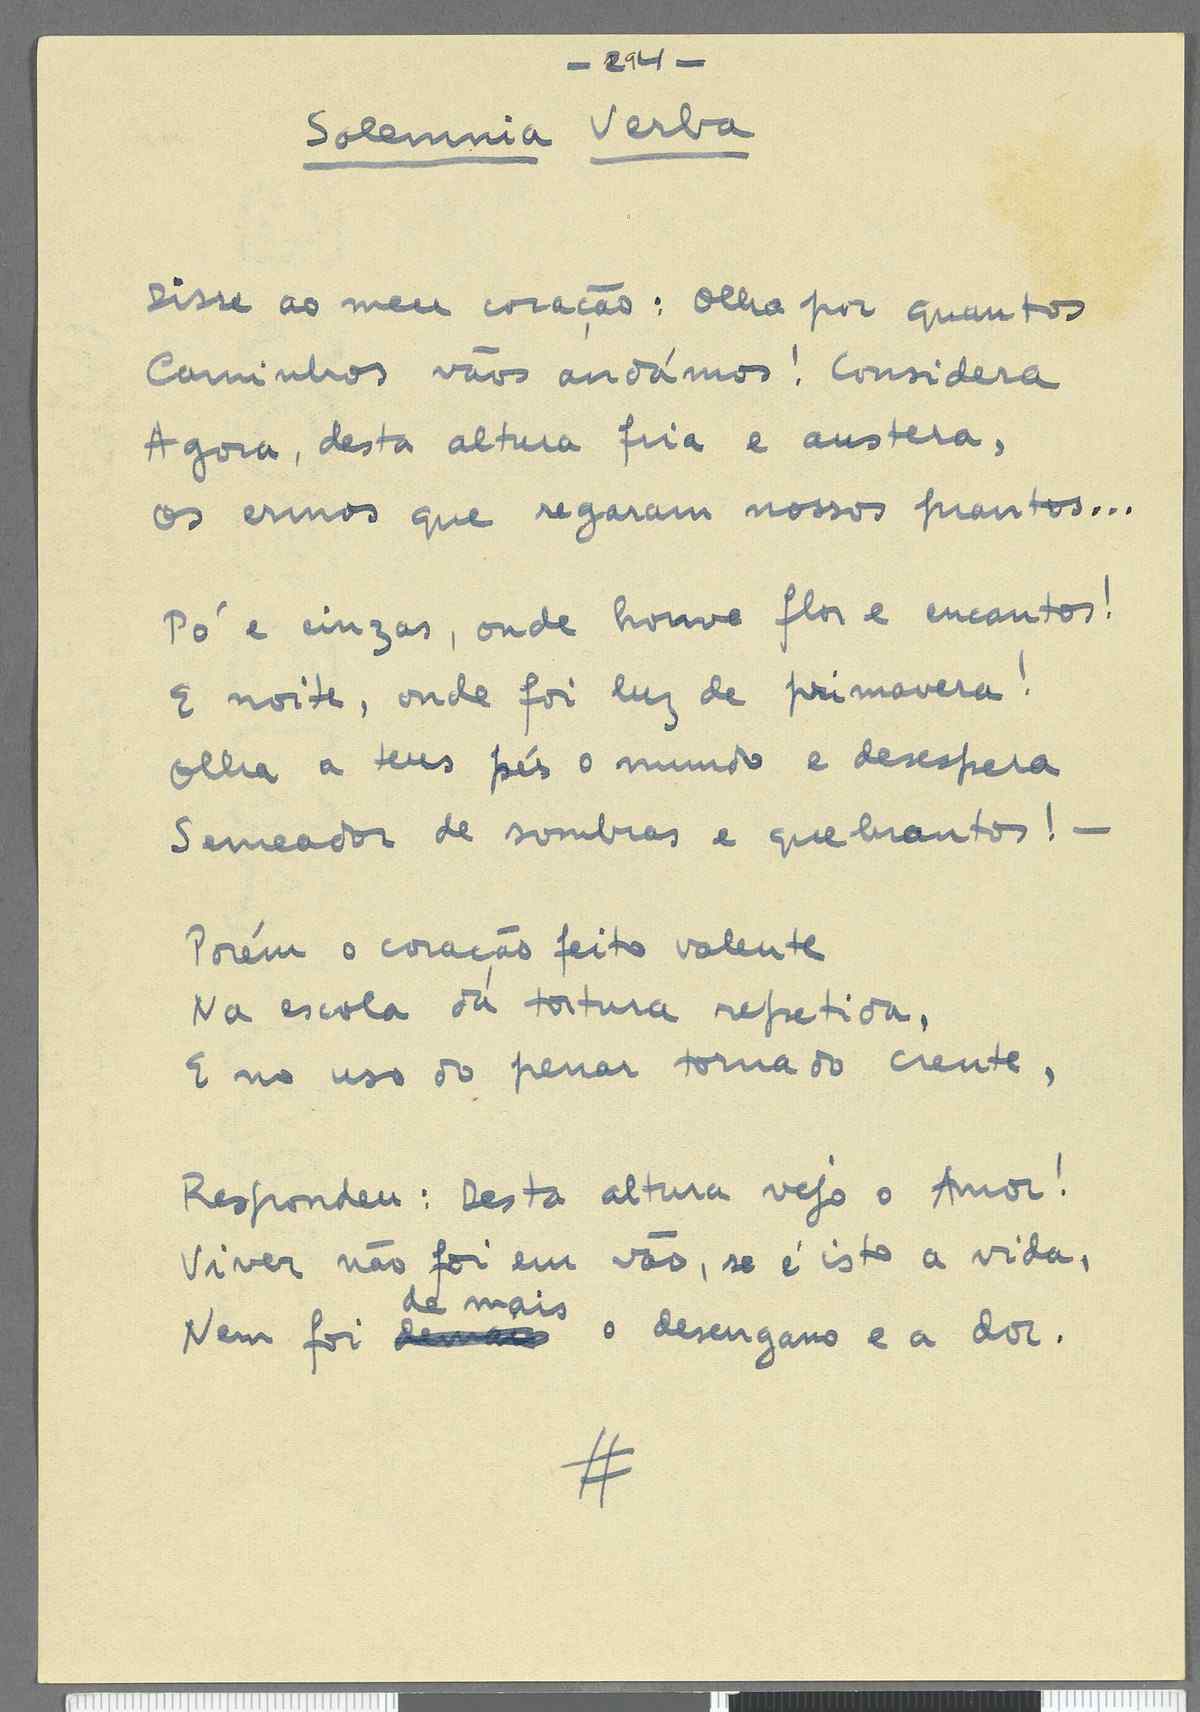 - 294 -
Solemnia Verba
Disse ao meu coração: Olha por quantos
Caminhos vãos andámos! Considera
Agora, desta altura fria e austera,
Os ermos que regaram nossos prantos...
Pó e cinzas, onde houve flor e encantos!
E noite, onde foi luz de primavera!
Olha a teus pés o mundo e desespera
Semeador de sombras e quebrantos! —
Porém o coração feito valente
Na escola dá tortura repetida,
E no uso do penar tornado crente,
Respondeu: Desta altura vejo o Amor!
Viver não foi em vão, se é isto a vida,
de mais
Nem foi demais o desengano e a dor.
#